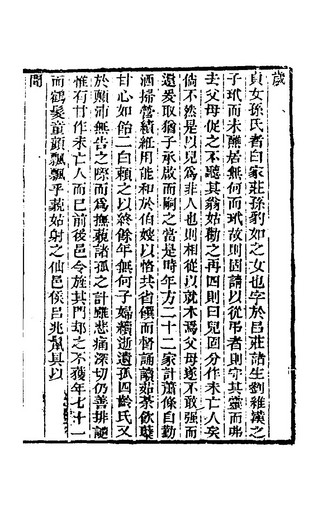 歲
貞女孫氏者白家莊孫豹如之女也字於呂莊諸生劉維漢之
子玳而未醮居無何而玳故則固請以從弔者則守其靈而弗
去父母促之不聽其翁姑勸之再四則曰兒固分作未亡人矣
倘不然是以兒為非人也則相從以就木焉父母遂不敢強而
還爰取猶子承啟而嗣之當是時年方二十二家計蕭條自勤
洒掃營績紝用能和於伯嫂以恪共省饌而督誦讀茹荼飲蘖
甘心如飴二白賴之以終餘年無何子婦續逝遺孤四齡氏又
於顛沛無告之際而為撫藐諸孤之計雖悲痛深切仍善排譴
惟有甘作未亡人而已前後邑令旌其門却之不獲年七十一
而鶴髮童顏飄飄乎藐姑射之仙邑侯呂兆鬵具以
聞